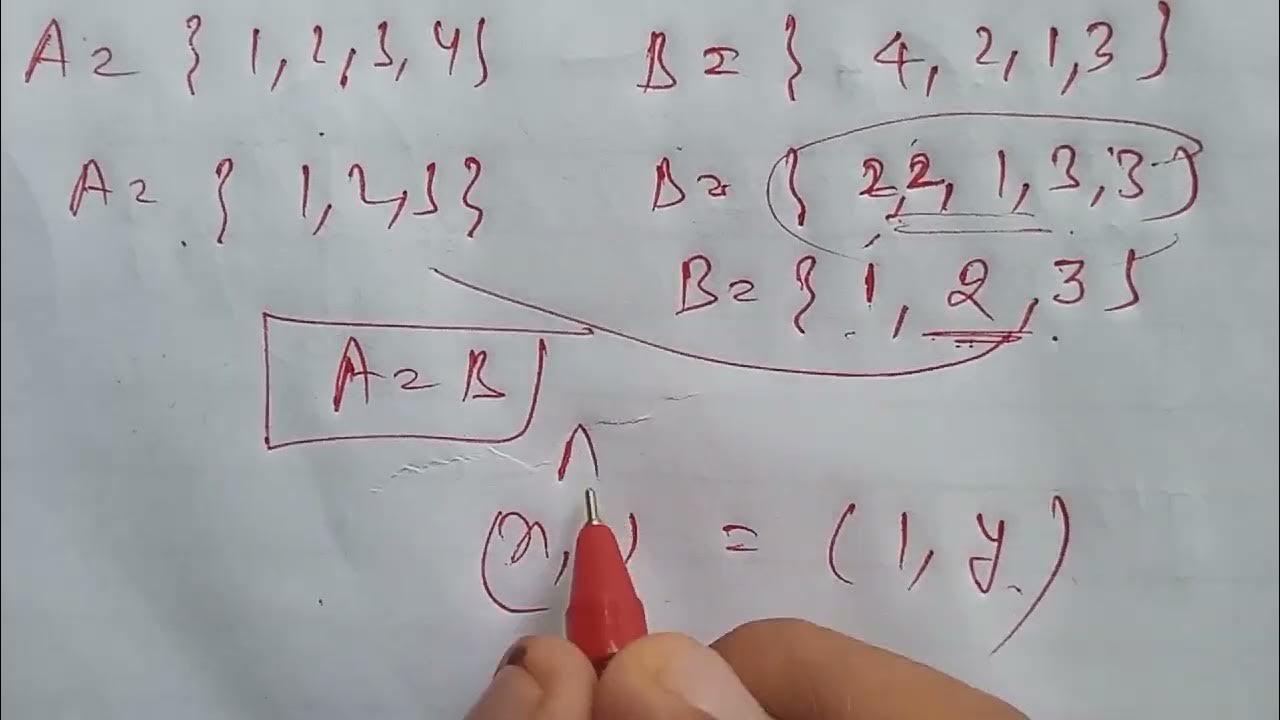 A = { 1, 2, 3, 4} B = { 4, 2, 1, 3 }
A = { 1, 2, 3} B = { 2, 2, 1, 3, 3 }
B = { 1, 2, 3 }
A = B
(x, ) = (1, y)